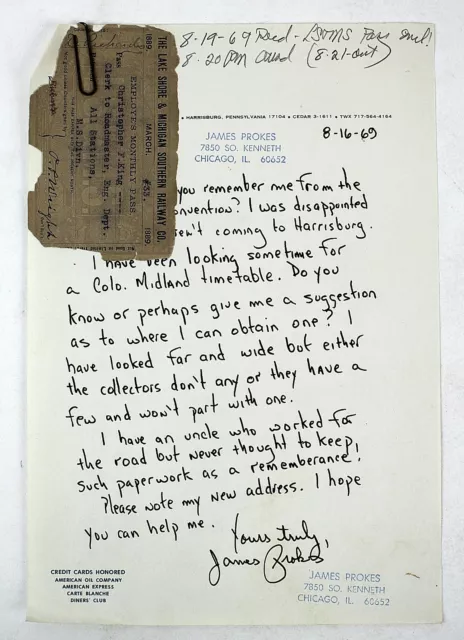 8-19-69 Recd - LS&MS Pass incl!
8-20 PM Ansd (8-21-out)
THE LAKE SHORE & MICHIGAN SOUTHERN RAILWAY CO.
1889. MARCH. 1889.
EMPLOYE'S MONTHLY PASS.
#33.
Pass Christopher F.King ----
Clerk to Roadmaster, Eng. Dept.
All Stations.
• HARRISBURG, PENNSYLVANIA 17104 • CEDAR 3-1611 • TWX 717-564-4164
JAMES PROKES
7850 SO. KENNETH
CHICAGO, IL. 60652
8-16-69
you remember me from the
convention? I was disappointed
coming to Harrisburg.
I have been looking sometime for
a Colo. Midland timetable. Do you
know or perhaps give me a suggestion
as to where I can obtain one? I
have looked far and wide but either
the collectors don't any or they have a
few and won't part with one.
I have an uncle who worked for
the road but never thought to keep
such paperwork as a rememberance!
Please note my new address. I hope
you can help me.
Yours truly,
James Prokes
CREDIT CARDS HONORED
AMERICAN OIL COMPANY
AMERICAN EXPRESS
CARTE BLANCHE
DINERS' CLUB
JAMES PROKES
7850 SO. KENNETH
CHICAGO, IL. 60652